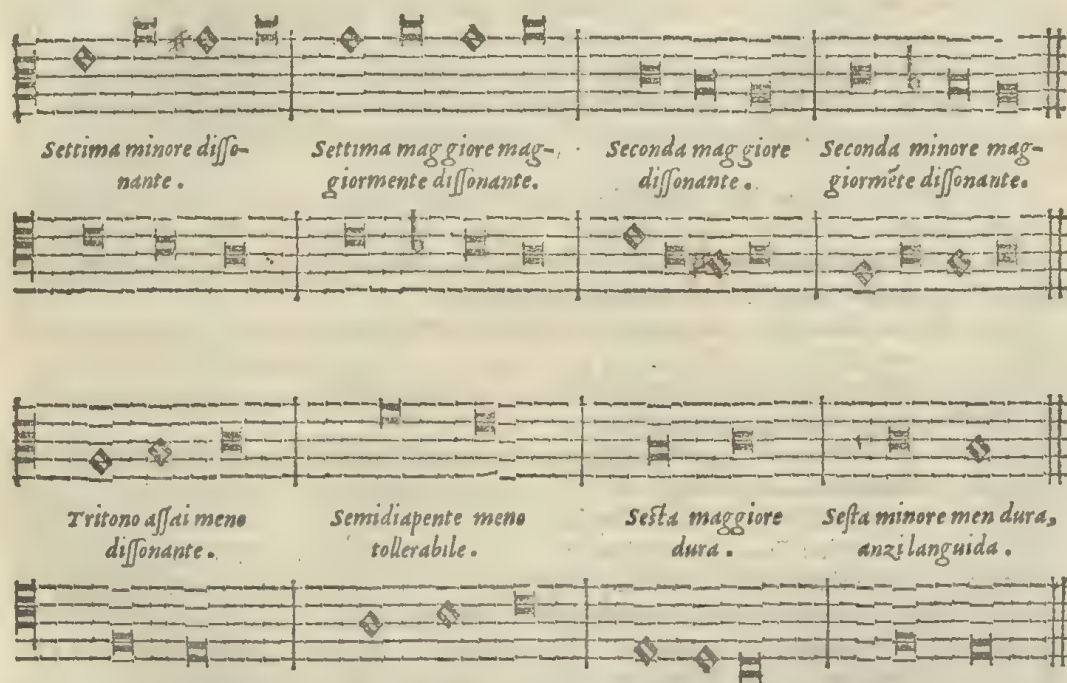 Settima minore disso-
nante.
Settima maggiore mag-
giormente dissonante.
Seconda maggiore
dissonante.
Seconda minore mag-
giormẽte dissonante.
Tritono assai meno
dissonante.
Semidiapente meno
tollerabile.
Sesta maggiore
dura.
Sesta minore men dura,
anzi languida.